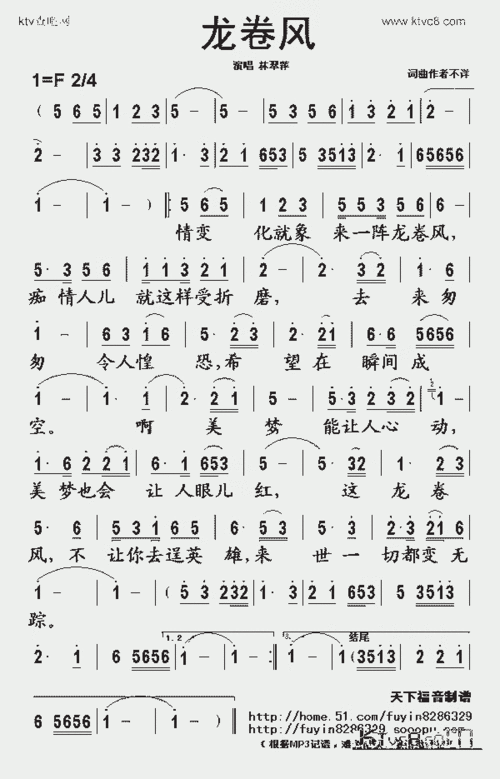 ktv查吧网
www.ktvc8.com
龙卷风
演唱 林翠萍
词曲作者不详
1=F 2/4
( 5 6 5 | 1 2 3 | 5 - | 5 - | 5 · 3 5 6 5 | 1 3 2 1 | 2 - |
2 - | 3 3 2 3 2 | 1 · 3 | 2 1 6 5 3 | 5 3 5 1 3 | 2 · 1 | 6 5 6 5 6 |
1 - | 1 - ) |: 5 6 5 | 1 2 3 | 5 5 3 5 | 6 - |
情变 化就象 来一阵龙卷风,
5 · 3 5 6 | 1 1 3 2 1 | 2 - | 2 · 3 2 | 1 · 6 |
痴 情人儿 就这样受折 磨, 去 来匆
1 - | 6 3 1 6 | 5 · 2 3 | 2 · 2 1 | 6 · 6 | 5 6 5 6 |
匆 令人惶 恐,希 望在 瞬间成
1 - | 1 - | 2 · 2 1 | 5 - | 5 · 3 2 3 2 | 1 - |
空。 啊 美 梦 能让人心 动,
1 · 6 2 2 1 | 6 · 1 6 5 3 | 5 - | 5 · 3 2 | 1 · 2 2 3 |
美 梦也会 让 人眼儿 红, 这 龙卷
5 · 6 | 5 3 1 6 5 | 6 · 5 3 | 5 · 3 | 2 · 3 2 1 6 |
风,不 让你去逞英 雄,来 世一 切都变无
1 - | 1 - ( | 5 3 2 3 2 | 1 · 3 | 2 1 6 5 3 | 5 3 5 1 3 |
踪。
1、2.
3.
结尾
2 · 1 | 6 5 6 5 6 | 1 - | 1 - :| 1 - | 1 ( 3 5 1 3 | 2 2 1 |
6 5 6 5 6 | 1 - | 1 - ) ‖
天下福音制谱
http://home.51.com/fuyin8286329
http://fuyin8286329.sooopu.com
(根据MP3记谱,